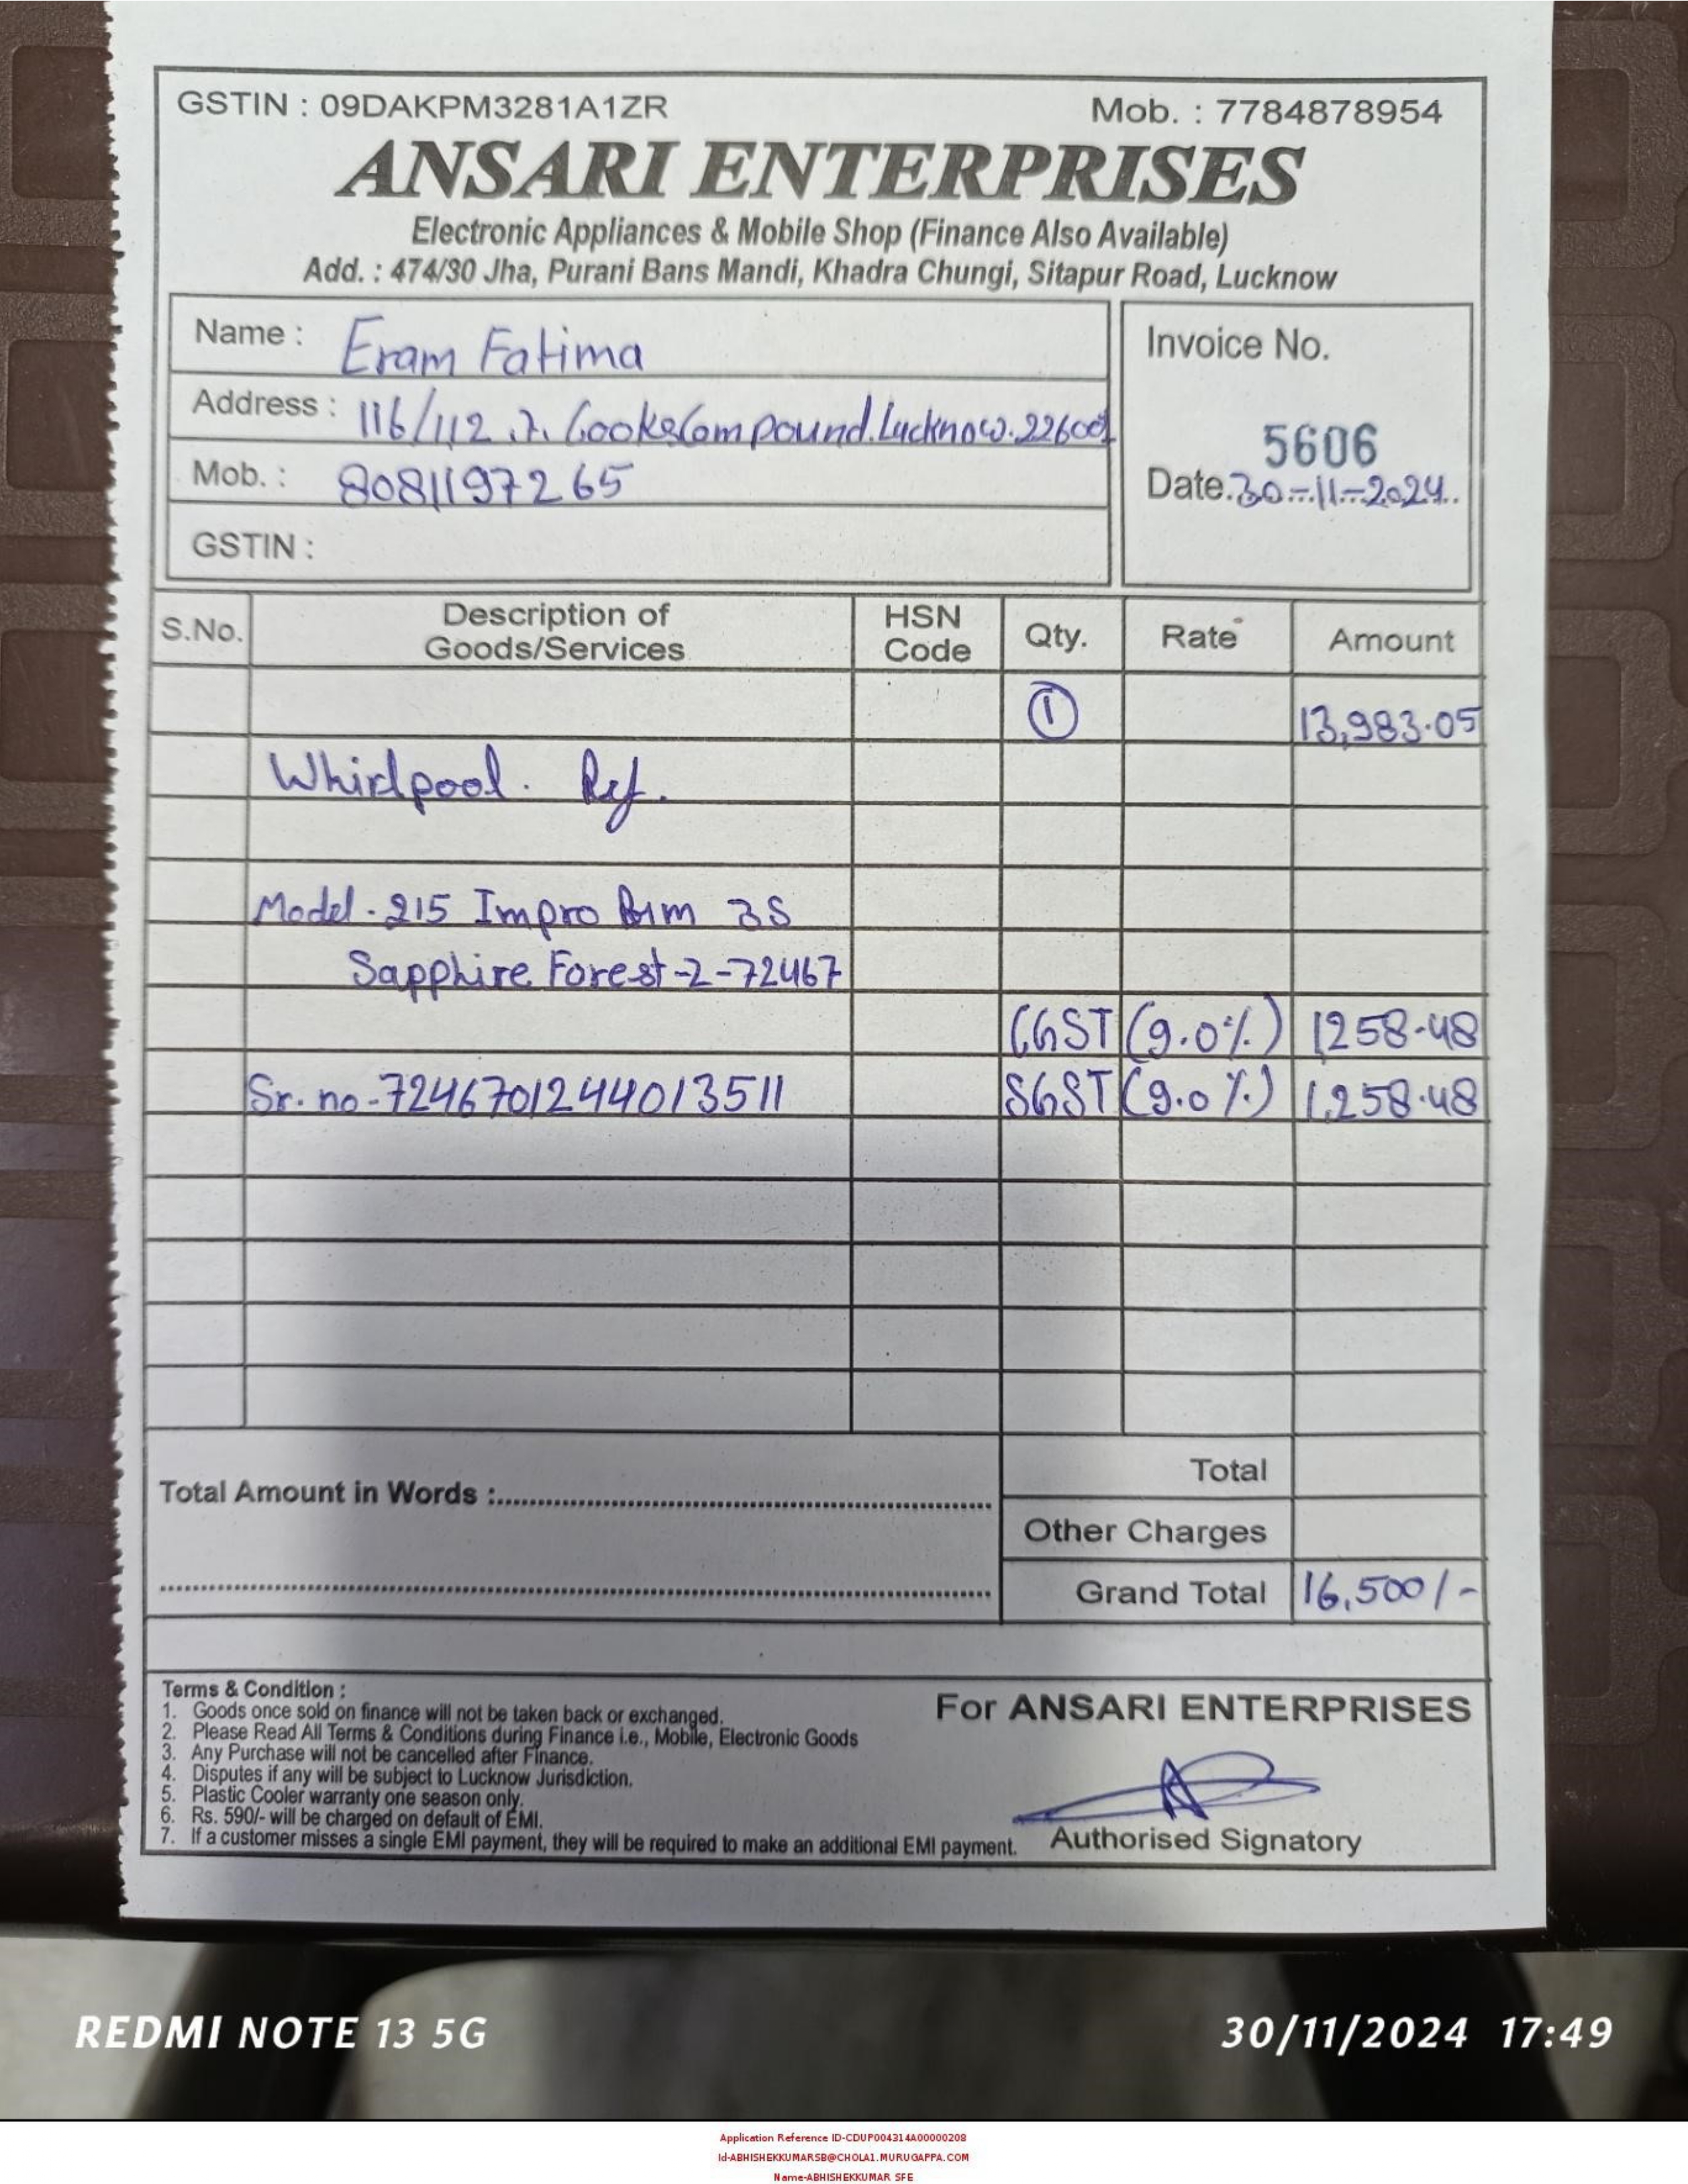 GSTIN : 09DAKPM3281A1ZR Mob. : 7784878954
ANSARI ENTERPRISES
Electronic Appliances & Mobile Shop (Finance Also Available)
Add. : 474/30 Jha, Purani Bans Mandi, Khadra Chungi, Sitapur Road, Lucknow
Name : Eram Fatima
Address : 116/112 Cooke Compound. Lucknow. 226001
Mob. : 8081197265
GSTIN :
Invoice No.
5606
Date. 30-11-2024
S.No. Description of Goods/Services HSN Code Qty. Rate Amount
1 13,983.05
Whirlpool. Ref.
Model - 215 Impro Prm 3S
Sapphire Forest-2-72467
CGST (9.0%) 1258.48
Sr. no - 7246701244013511 SGST (9.0%) 1,258.48
Total
Total Amount in Words :
Other Charges
Grand Total 16,500/-
Terms & Condition :
1. Goods once sold on finance will not be taken back or exchanged.
2. Please Read All Terms & Conditions during Finance i.e., Mobile, Electronic Goods
3. Any Purchase will not be cancelled after Finance.
4. Disputes if any will be subject to Lucknow Jurisdiction.
5. Plastic Cooler warranty one season only.
6. Rs. 590/- will be charged on default of EMI.
7. If a customer misses a single EMI payment, they will be required to make an additional EMI payment.
For ANSARI ENTERPRISES
Authorised Signatory
REDMI NOTE 13 5G 30/11/2024 17:49
Application Reference ID-CDUP004314A00000208
Id-ABHISHEKKUMARSB@CHOLA1.MURUGAPPA.COM
Name-ABHISHEKKUMAR SFE